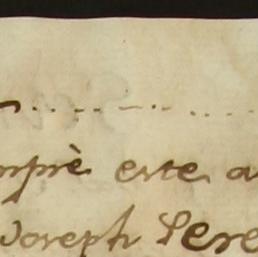 mprè este a
Joseph Pere